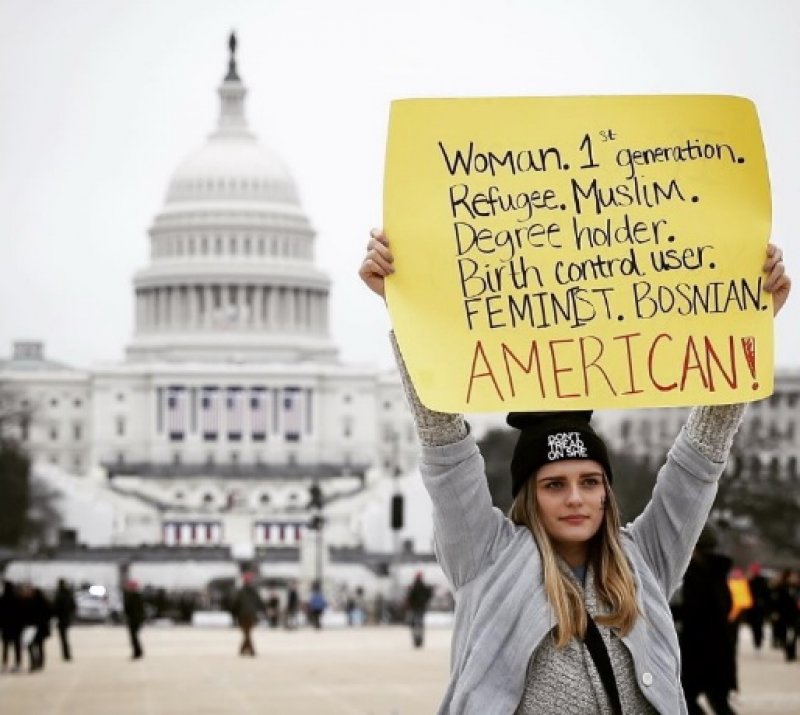 Woman. 1st generation.
Refugee. Muslim.
Degree holder.
Birth control user.
FEMINIST. BOSNIAN.
AMERICAN!
DON'T
TREAD
ON SHE